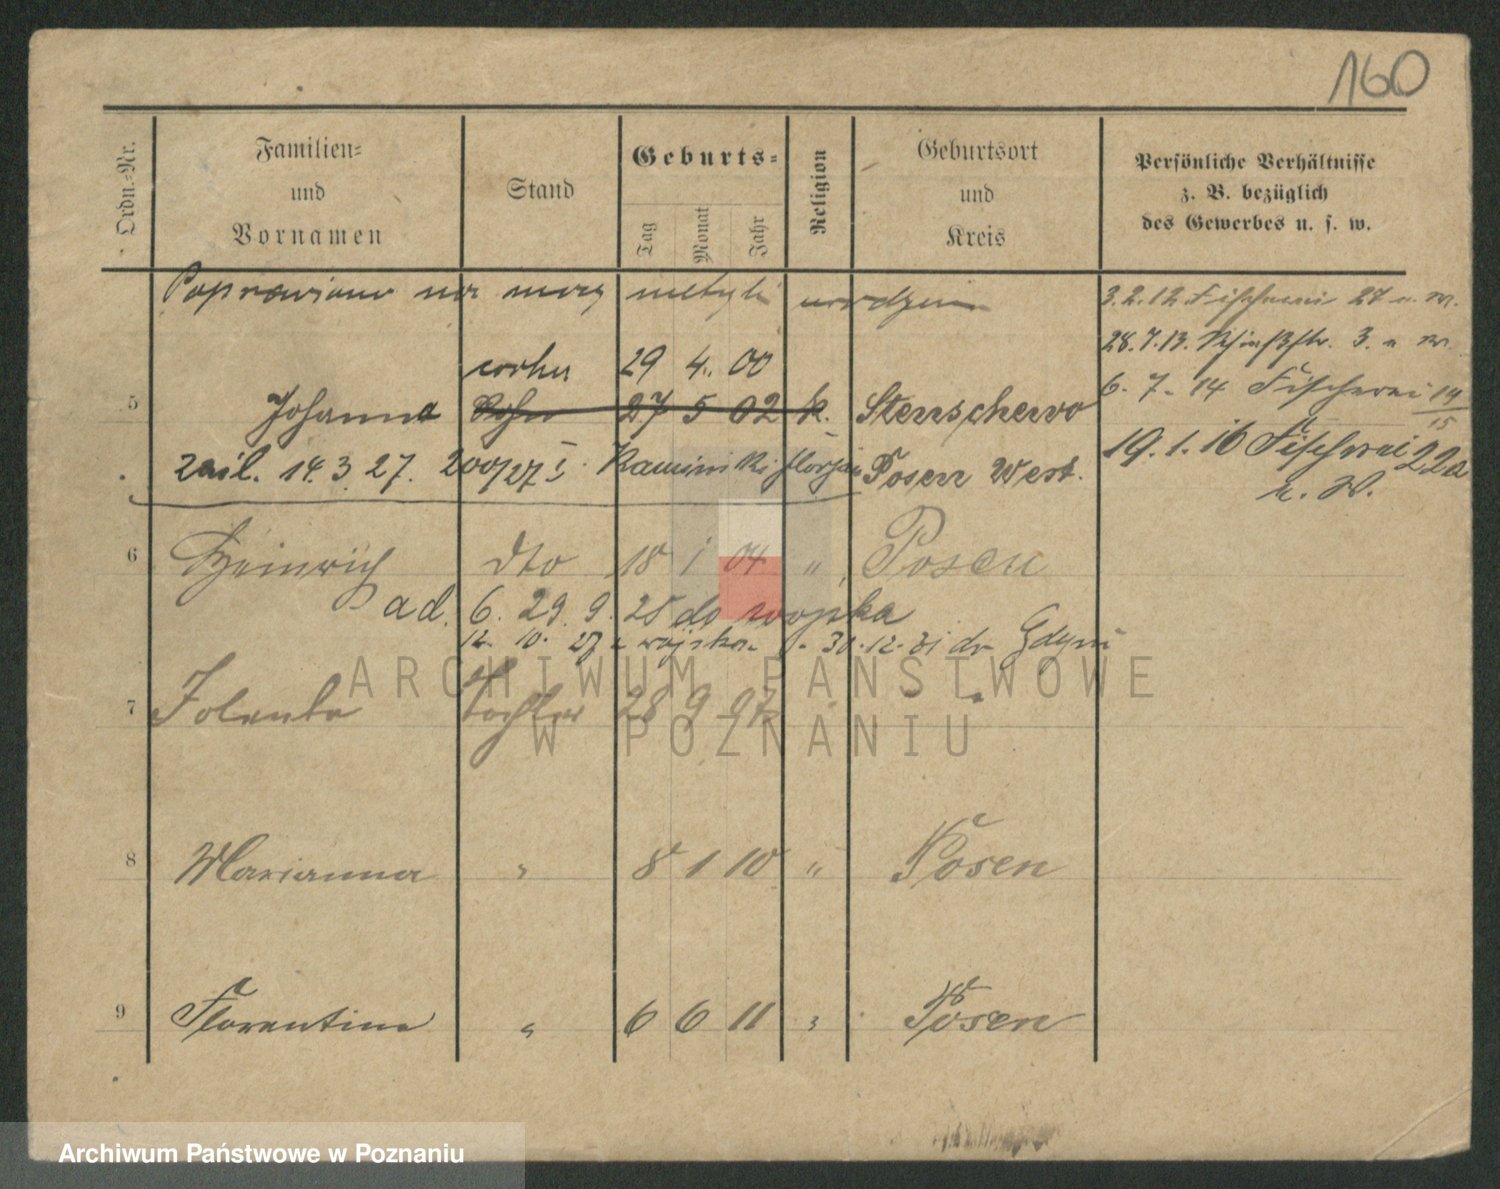 160
Ordn.-Nr.
Familien-
und
Vornamen
Stand
Geburts-
Tag
Monat
Jahr
Religion
Geburtsort
und
Kreis
Persönliche Verhältnisse
z. B. bezüglich
des Gewerbes u. s. w.
Poprawiono na mocy metryki urodzenia
3.2.12 Fischerei 27 u. W.
28.7.13. Schießstr. 3. u W.
6. 7. 14 Fischerei 19/15
19.1.16 Fischerei 22a
u. W.
córka 29 4. 00
5 Johanna Sohn 27 5 02 k. Stenschewo
zaśl. 14.3.27. 200/27 I. Kamiński Florjan Posen West.
6 Heinrich dto 18 1 04 " Posen
ad. 6. 29. 9. 25 do wojska
12. 10. 27 z wojska. 30.12.31 do Gdyni
7 Jolenta Tochter 28 9 07 "
8 Marianna " 8 1 10 " Posen
9 Florentine " 6 6 11 " Posen
ARCHIWUM PAŃSTWOWE
W POZNANIU
Archiwum Państwowe w Poznaniu